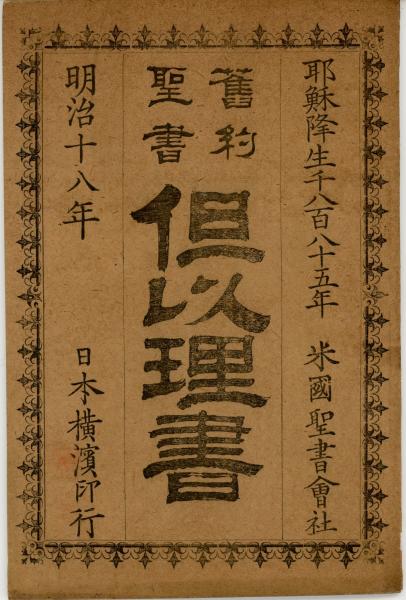 耶穌降生千八百八十五年 米國聖書會社
舊約
聖書
但以理書
明治十八年 日本橫濱印行